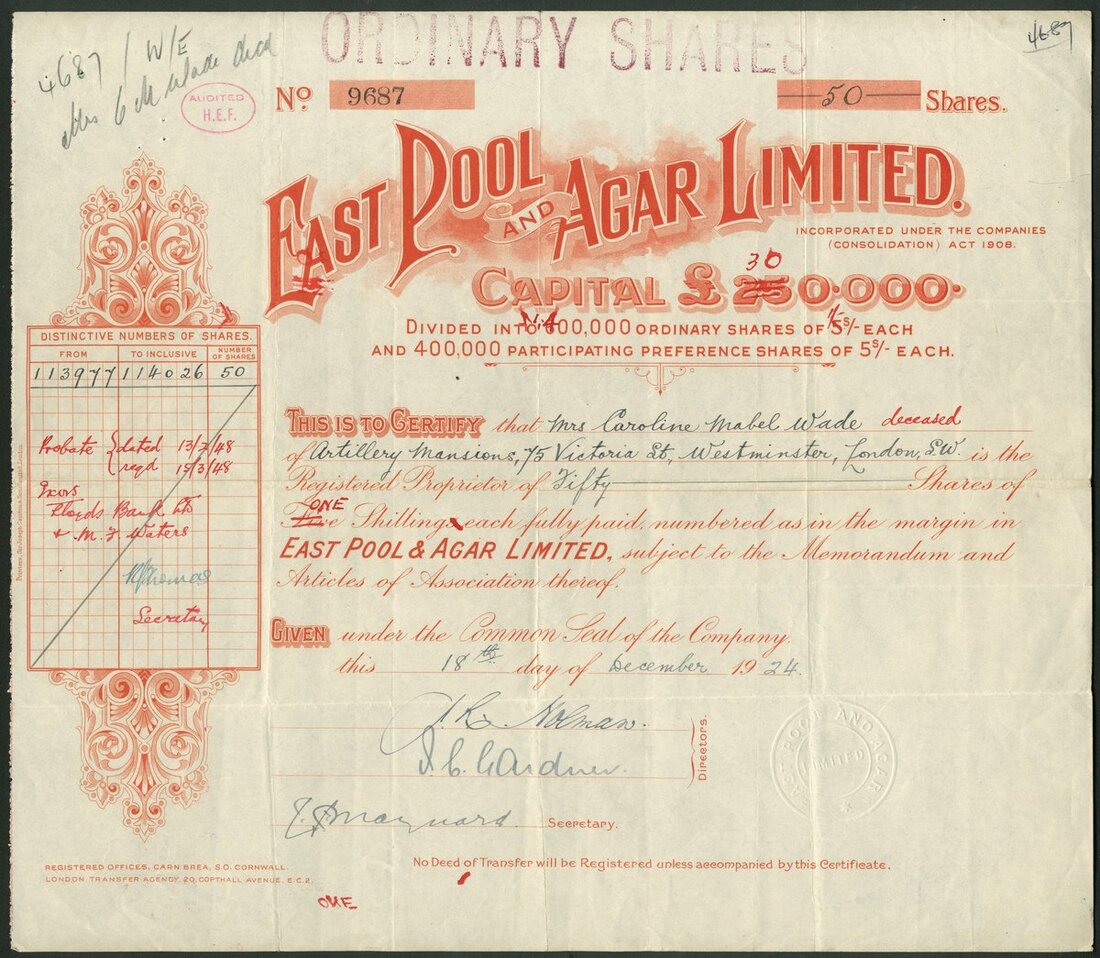 ORDINARY SHARES
4687 / W/E
4687
Mrs C M Wade decd
AUDITED
H.E.F.
No. 9687
50 Shares.
EAST POOL AND AGAR LIMITED.
INCORPORATED UNDER THE COMPANIES
(CONSOLIDATION) ACT 1908.
30
CAPITAL £ 250,000.
1/-
DIVIDED INTO 600,000 ORDINARY SHARES OF 5s/- EACH
AND 400,000 PARTICIPATING PREFERENCE SHARES OF 5s/- EACH.
DISTINCTIVE NUMBERS OF SHARES.
FROM TO INCLUSIVE NUMBER OF SHARES
113977 114026 50
Probate { dated 13/2/48
regd 15/3/48
Exors
Lloyds Bank Ltd
& M. F. Waters
Secretary
THIS IS TO CERTIFY that Mrs Caroline Mabel Wade deceased
of Artillery Mansions, 75 Victoria St, Westminster, London, S.W. is the
Registered Proprietor of Fifty Shares of
ONE
Five Shillings each fully paid, numbered as in the margin in
EAST POOL & AGAR LIMITED, subject to the Memorandum and
Articles of Association thereof.
GIVEN under the Common Seal of the Company.
this 18th day of December 1924.
Directors.
EAST POOL AND AGAR
LIMITED
Secretary.
REGISTERED OFFICES, CARN BREA, S.O. CORNWALL.
LONDON TRANSFER AGENCY, 20, COPTHALL AVENUE, E.C.2.
No Deed of Transfer will be Registered unless accompanied by this Certificate.
ONE